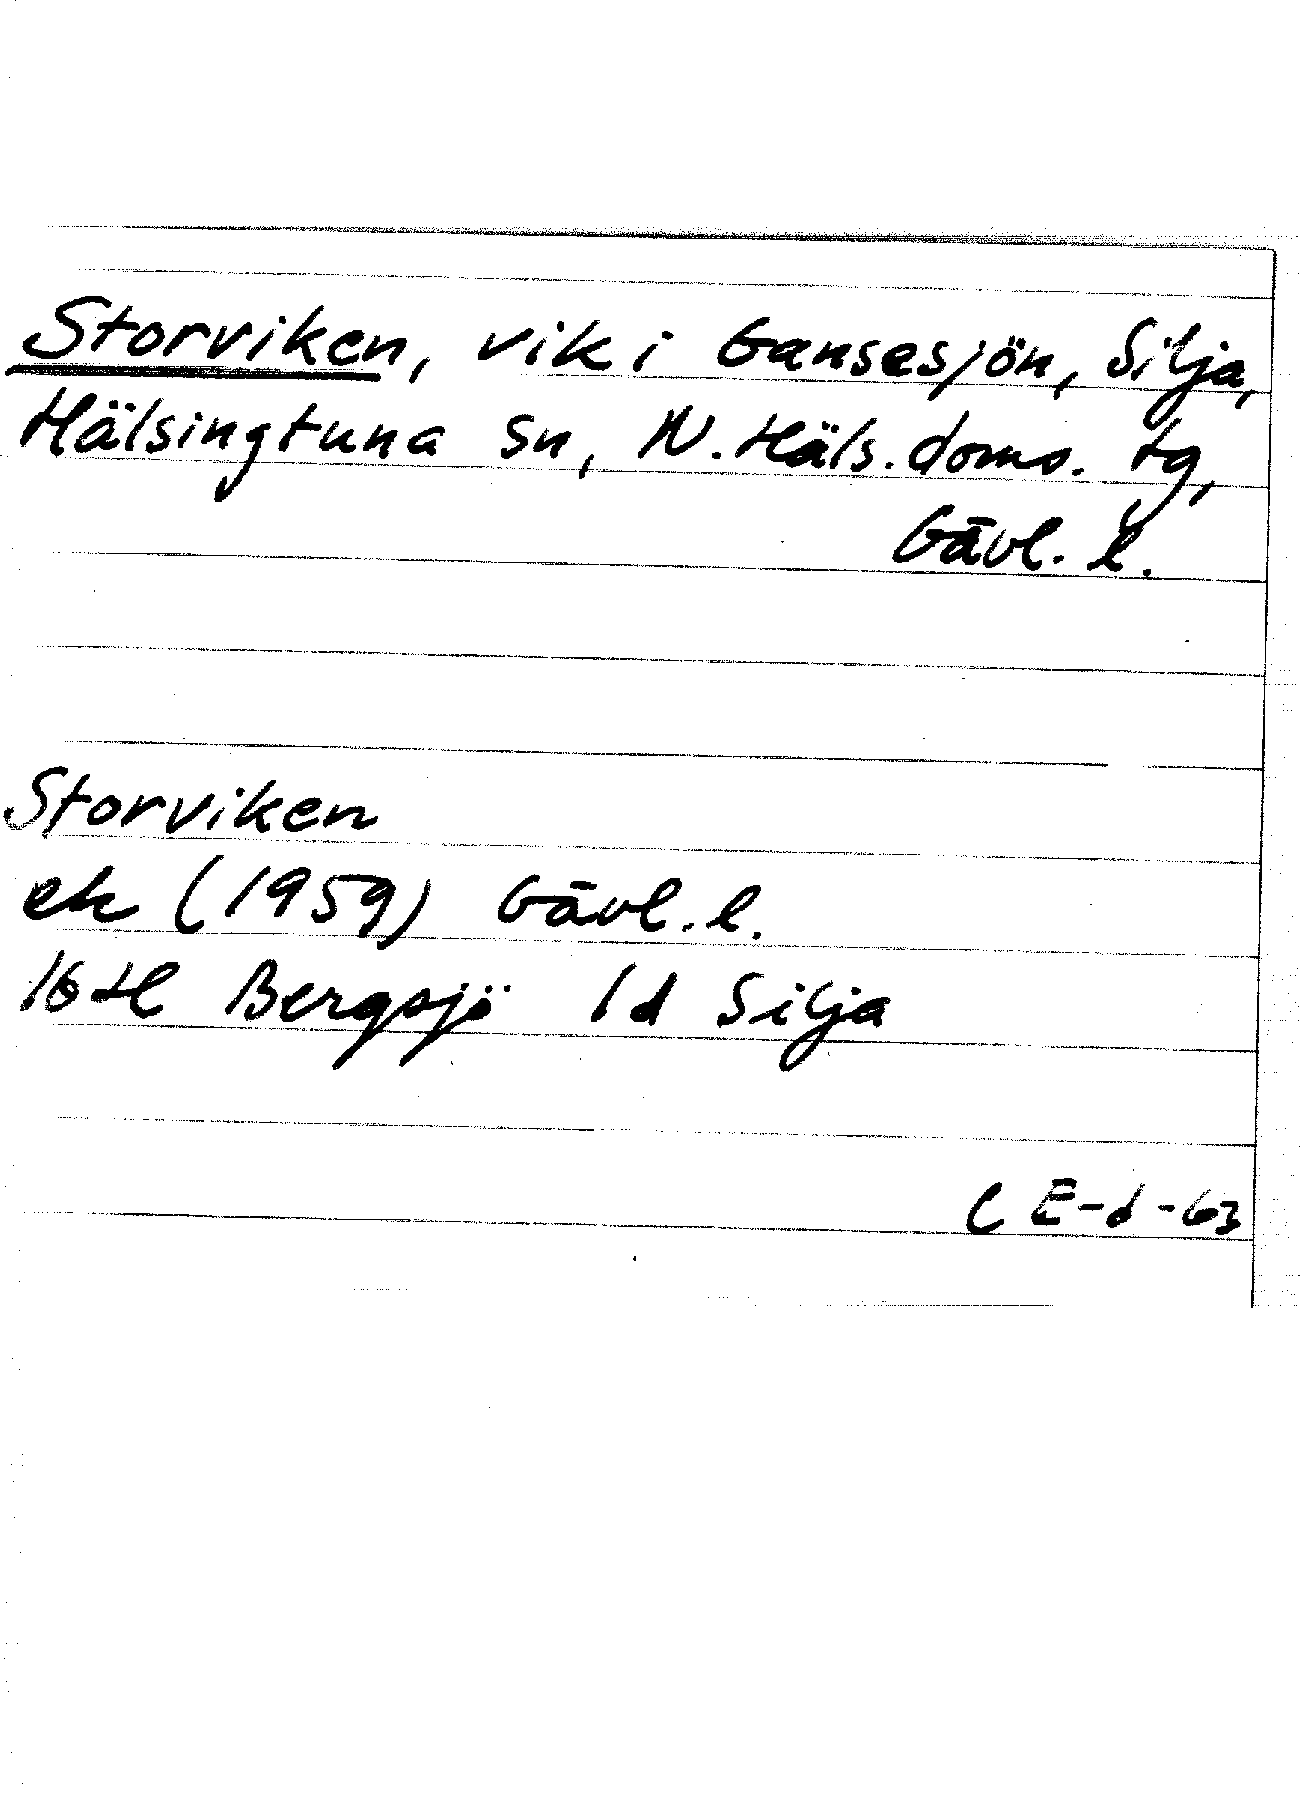 Storviken, vik i Gansesjön, Silja,
Hälsingtuna sn, N. Häls. doms. tg,
Gävl. l.
Storviken
ek (1959) Gävl. l.
16H Bergsjö 1d Silja
C E-d-63